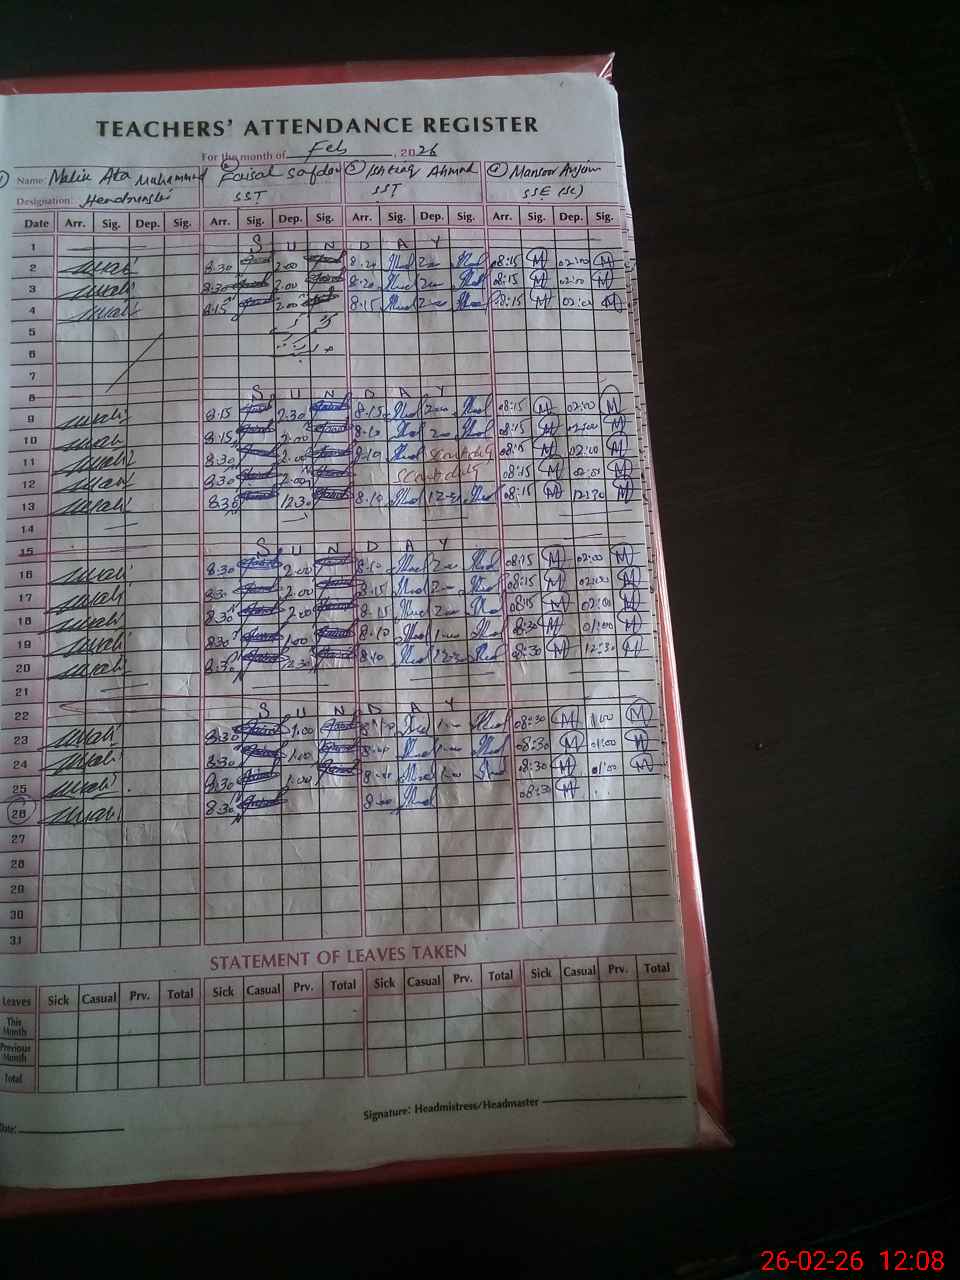 TEACHERS' ATTENDANCE REGISTER
For the month of Feb, 2026
1 Name: Malik Ata Muhammad 2 Faisal Safdar 3 Ishtiaq Ahmad 4 Mansoor Anjum
Designation: Headmaster SST SST SSE (Sc)
Date Arr. Sig. Dep. Sig. Arr. Sig. Dep. Sig. Arr. Sig. Dep. Sig. Arr. Sig. Dep. Sig.
1 S U N D A Y
2 8:30 2:00 8:20 2:00 08:15 M 02:00 M
3 8:30 2:00 8:20 2:00 08:15 M 02:00 M
4 8:15 2:00 8:15 2:00 08:15 M 02:00 M
5
6
7
8 S U N D A Y
9 8:15 2:30 8:15 2:00 08:15 M 02:00 M
10 8:15 2:00 8:10 2:00 08:15 M 02:00 M
11 8:30 2:00 8:10 08:15 M 02:00 M
12 8:30 2:00 08:15 M 02:00 M
13 8:30 12:30 8:10 12:30 08:15 M 12:30 M
14
15 S U N D A Y
16 8:30 2:00 8:10 2:00 08:15 M 02:00 M
17 8:30 2:00 8:15 2:00 08:15 M 02:00 M
18 8:30 2:00 8:15 2:00 08:15 M 02:00 M
19 8:30 1:00 8:10 1:00 08:30 M 01:00 M
20 8:30 12:30 8:10 12:30 08:30 M 12:30 M
21
22 S U N D A Y
23 8:30 1:00 8:10 1:00 08:30 M 1:00 M
24 8:30 1:00 1:00 08:30 M 01:00 M
25 8:30 1:00 1:00 08:30 M 01:00 M
26 8:30 08:30 M
27
28
29
30
31
STATEMENT OF LEAVES TAKEN
Leaves Sick Casual Prv. Total Sick Casual Prv. Total Sick Casual Prv. Total Sick Casual Prv. Total
This Month
Previous Month
Total
Signature: Headmistress/Headmaster
Date:
26-02-26 12:08